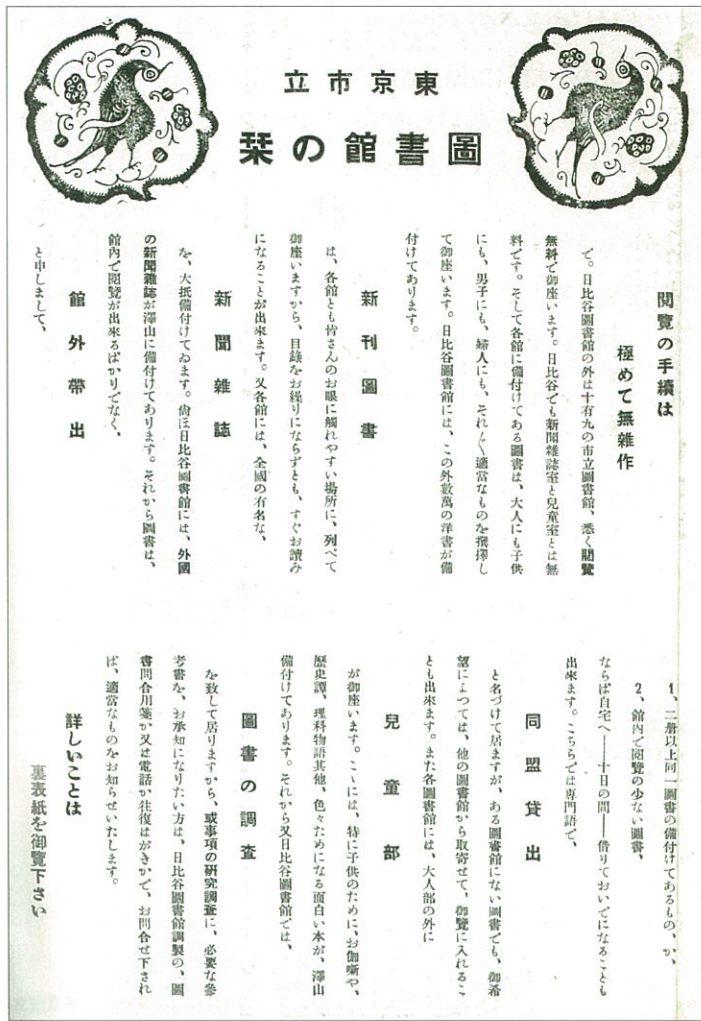 東京市立
圖書館の栞
閲覽の手續は
極めて無雜作
で。日比谷圖書館の外は十有九の市立圖書館、悉く閲覽
無料で御座います。日比谷でも新聞雜誌室と兒童室とは無
料です。そして各館に備付けてある圖書は、大人にも子供
にも、男子にも、婦人にも、それ〲適當なものを撰擇し
て御座います。日比谷圖書館には、この外數萬の洋書が備
付けてあります。
新刊圖書
は、各館とも皆さんのお眼に觸れやすい場所に、列べて
御座いますから、目錄をお繰りにならずとも、すぐお讀み
になることが出來ます。又各館には、全國の有名な、
新聞雜誌
を、大抵備付けてゐます。尙ほ日比谷圖書館には、外國
の新聞雜誌が澤山に備付けてあります。それから圖書は、
館內で閲覽が出來るばかりでなく、
館外帶出
と申しまして、
1、二册以上同一圖書の備付けてあるもの、か、
2、館內で閲覽の少ない圖書、
ならば自宅へ――十日の間――借りておいでになることも
出來ます。こちらでは專門語で、
同盟貸出
と名づけて居ますが、ある圖書館にない圖書でも、御希
望によつては、他の圖書館から取寄せて、御覽に入れるこ
とも出來ます。また各圖書館には、大人部の外に
兒童部
が御座います。こゝには、特に子供のために、お伽噺や、
歷史譚、理科物語其他、色々ためになる面白い本が、澤山
備付けてあります。それから又日比谷圖書館では、
圖書の調査
を致して居りますから、或事項の硏究調査に、必要な參
考書を、お承知になりたい方は、日比谷圖書館調製の、圖
書問合用箋か又は電話か往復はがきかで、お問合せ下され
ば、適當なものをお知らせいたします。
詳しいことは
裏表紙を御覽下さい